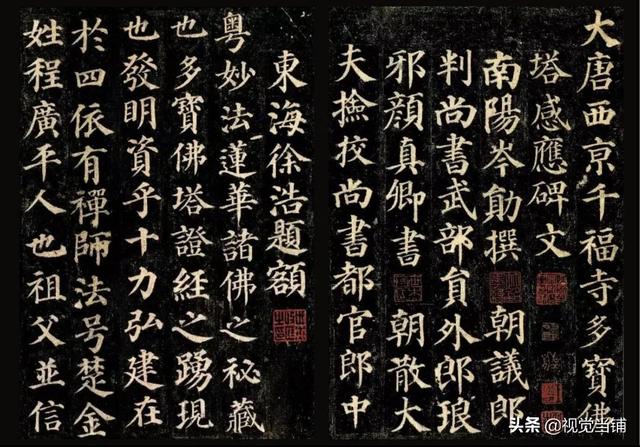 大唐西京千福寺多寶佛
塔感應碑文
南陽岑勛撰 朝議郎
判尚書武部員外郎琅
邪顏真卿書 朝散大
夫撿挍尚書都官郎中
東海徐浩題額
粵妙法蓮華諸佛之秘藏
也多寶佛塔證經之踴現
也發明資乎十力弘建在
於四依有禪師法号楚金
姓程廣平人也祖父並信
头条 @视觉当铺